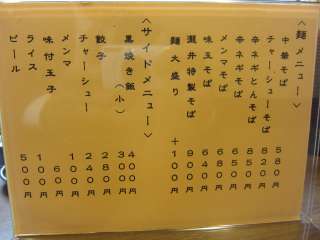 〈麺メニュー〉
中華そば 580円
チャーシューそば 820円
辛ネギとんそば 850円
辛ネギそば 680円
メンマそば 680円
味玉そば 640円
瀧井特製そば 980円
麺大盛り +100円
〈サイドメニュー〉
黒焼き飯 400円
(小) 300円
餃子 280円
チャーシュー 240円
メンマ 100円
味付玉子 60円
ライス 100円
ビール 500円